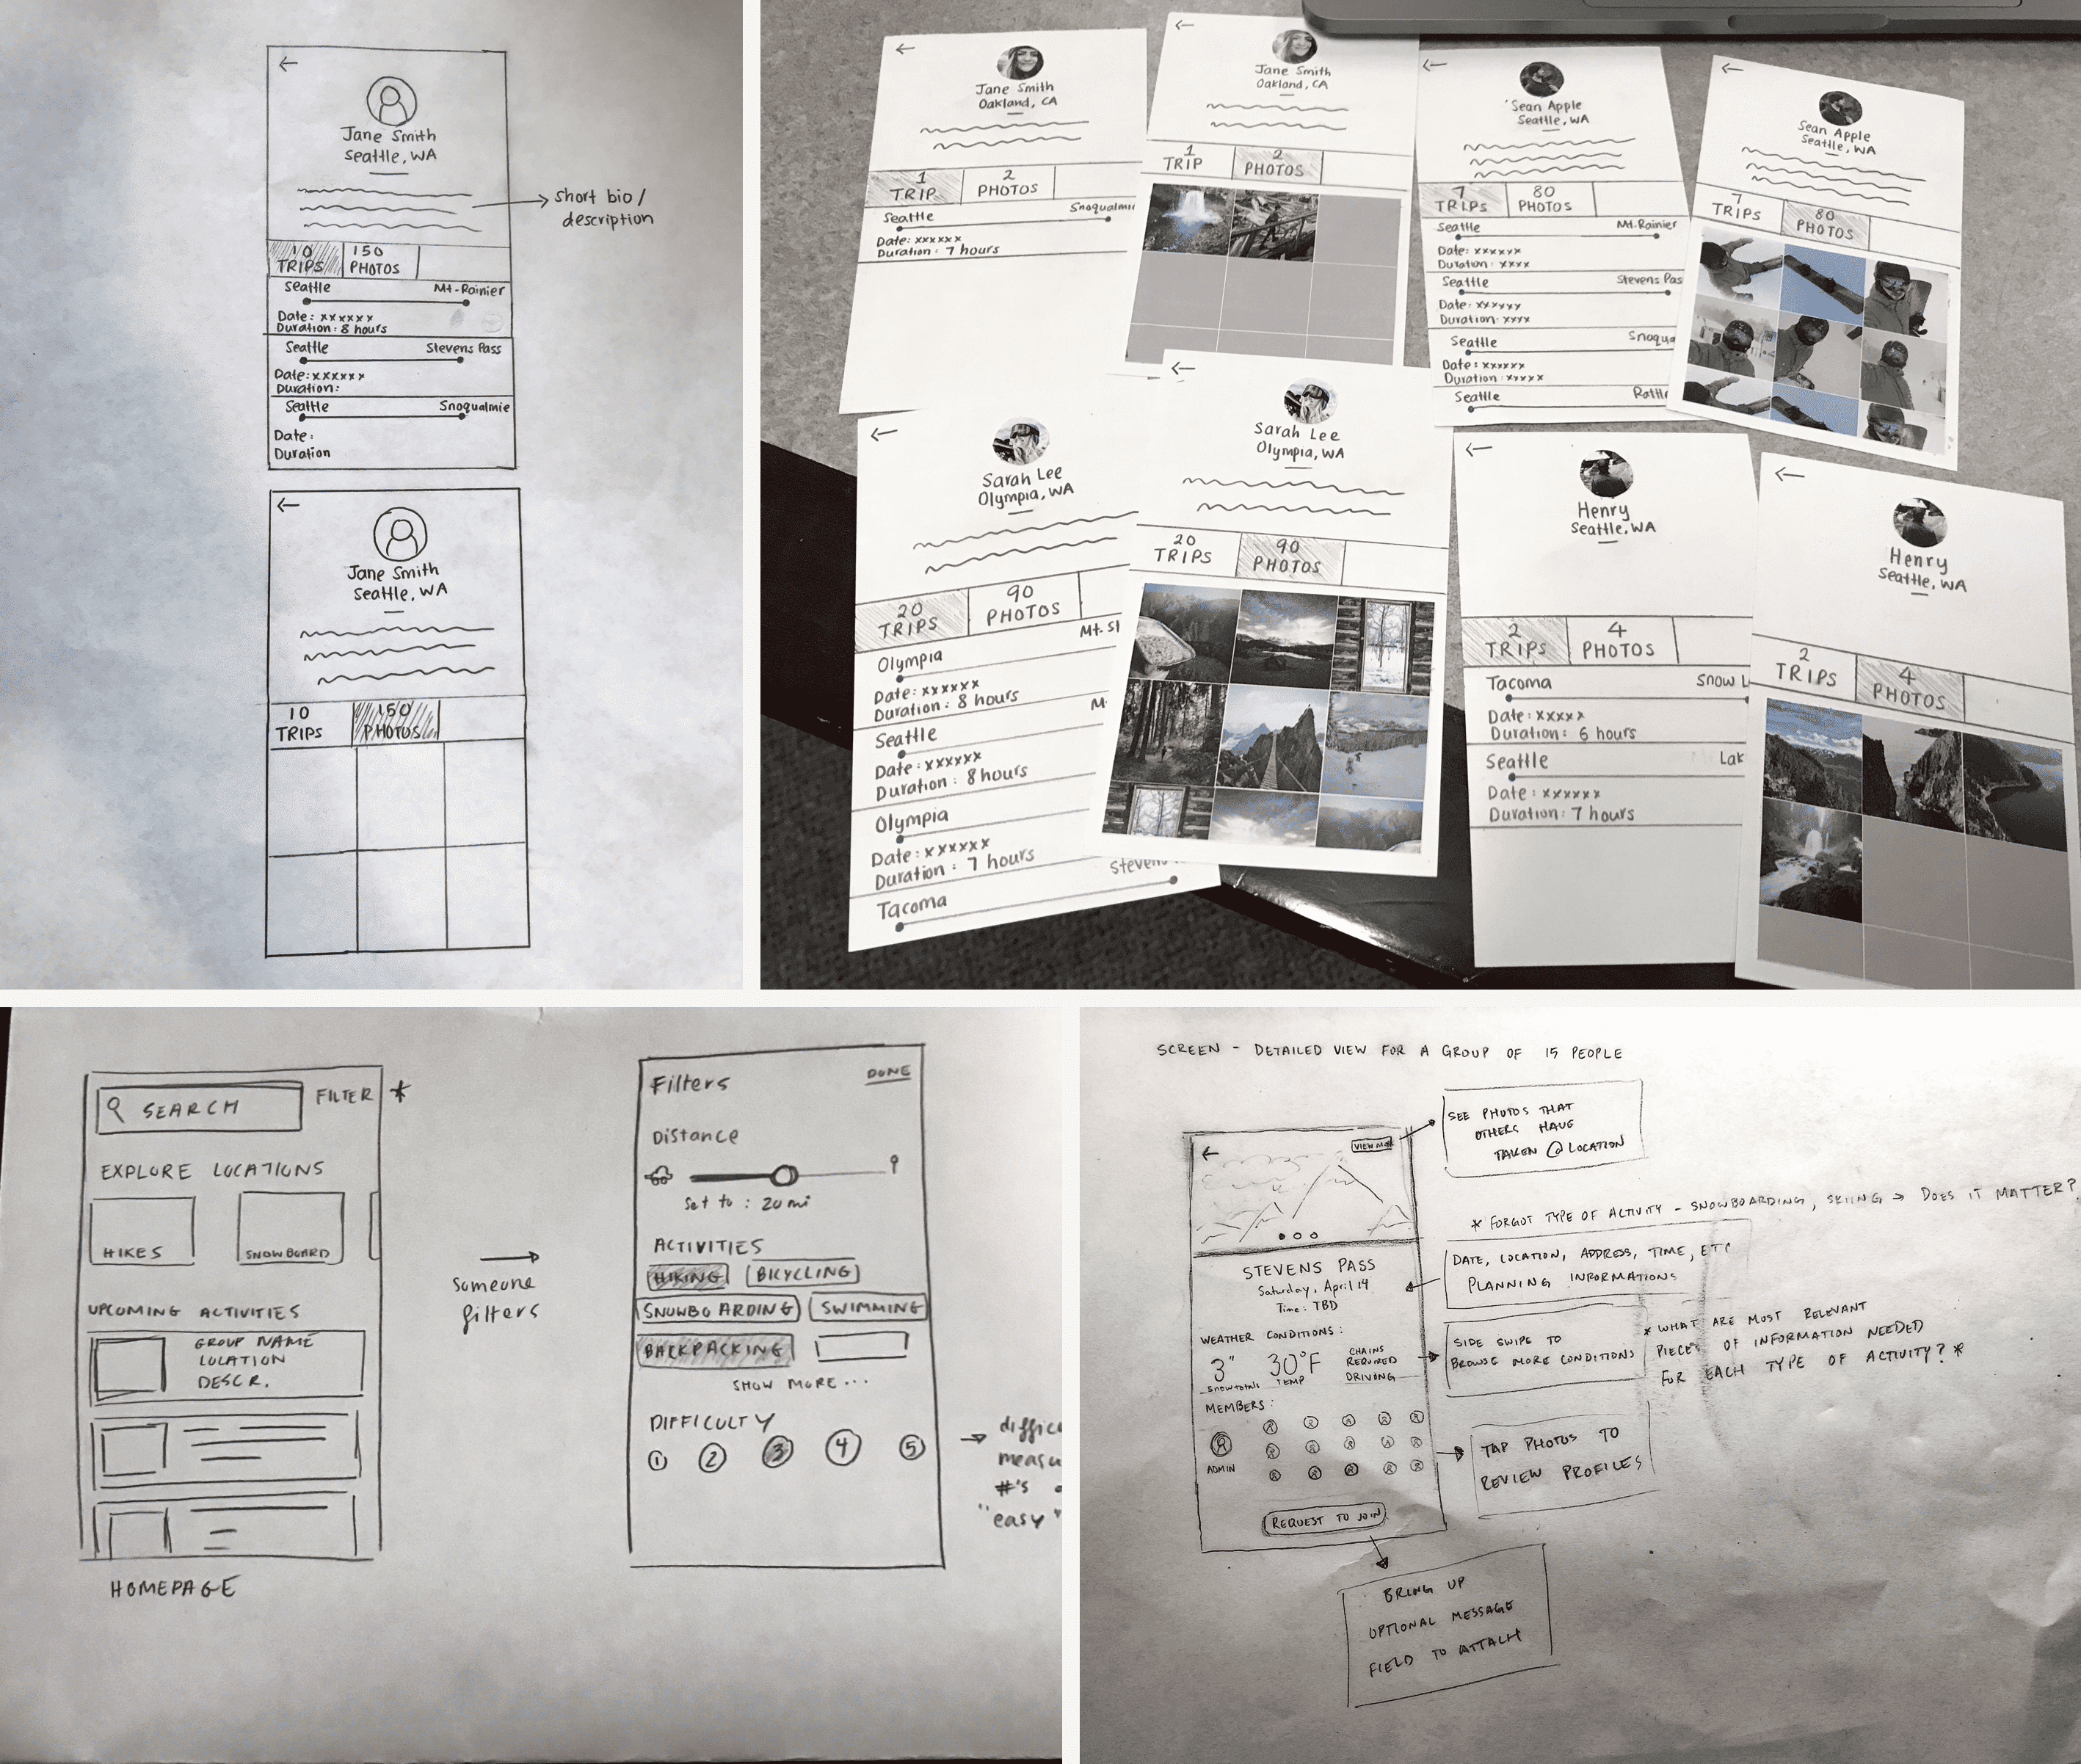 Jane Smith
Seattle, WA
short bio /
description
10 TRIPS
150 PHOTOS
Seattle Mt. Rainier
Date: xxxxxx
Duration: 8 hours
Seattle Stevens Pass
Date: xxxxxx
Duration:
Seattle Snoqualmie
Date:
Duration
Jane Smith
Seattle, WA
10 TRIPS
150 PHOTOS
Jane Smith
Oakland, CA
1 TRIP
2 PHOTOS
Seattle
Date: xxxxxx
Duration: 7 hours
Jane Smith
Oakland, CA
1 TRIP
2 PHOTOS
Sean Apple
Seattle, WA
7 TRIPS
80 PHOTOS
Seattle Mt. Rainier
Date: xxxxxx
Duration: xxxx
Seattle Stevens Pas
Date: xxxxxx
Duration: xxxx
Seattle Snoqua
Date: xxxxxx
Duration: xxxxx
Seattle
Sean Apple
Seattle, WA
7 TRIPS
80 PHOTOS
Sarah Lee
Olympia, WA
20 TRIPS
90 PHOTOS
Olympia
Date: xxxxxx
Duration: 8 hours
Seattle
Date: xxxxxx
Duration: 8 hours
Olympia
Date: xxxxxx
Duration: 7 hours
Stevens
Tacoma
Sarah Lee
Olympia, WA
20 TRIPS
90 PHOTOS
Henry
Seattle, WA
2 TRIPS
4 PHOTOS
Tacoma Snow L
Date: xxxxx
Duration: 6 hours
Seattle Lak
Date: xxxxxx
Duration: 7 hours
Henry
Seattle, WA
2 TRIPS
4 PHOTOS
SEARCH FILTER *
EXPLORE LOCATIONS
HIKES
SNOWBOARD
UPCOMING ACTIVITIES
GROUP NAME
LOCATION
DESCR.
HOMEPAGE
Someone
filters
Filters DONE
Distance
Set to : 20 mi
ACTIVITIES
HIKING BICYCLING
SNOWBOARDING SWIMMING
BACKPACKING
SHOW MORE...
DIFFICULTY
1 2 3 4 5
diffic
measu
#'s
"easy"
SCREEN - DETAILED VIEW FOR A GROUP OF 15 PEOPLE
VIEW MORE
SEE PHOTOS THAT
OTHERS HAVE
TAKEN @ LOCATION
* FORGOT TYPE OF ACTIVITY - SNOWBOARDING, SKIING → DOES IT MATTER?
STEVENS PASS
Saturday, April 14
Time: TBD
DATE, LOCATION, ADDRESS, TIME, ETC
PLANNING INFORMATIONS
WEATHER CONDITIONS:
3" 30°F
snow totals TEMP
CHAINS
REQUIRED
DRIVING
SIDE SWIPE TO
BROWSE MORE CONDITIONS
* WHAT ARE MOST RELEVANT
PIECES OF INFORMATION NEEDED
FOR EACH TYPE OF ACTIVITY? *
MEMBERS:
ADMIN
TAP PHOTOS TO
REVIEW PROFILES
REQUEST TO JOIN
BRING UP
OPTIONAL MESSAGE
FIELD TO ATTACH